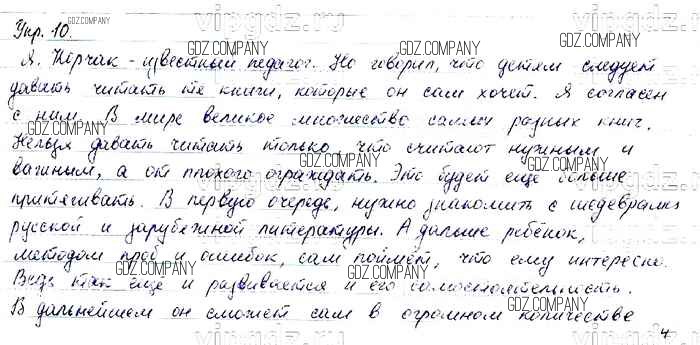 Упр. 10.
Я. Корчак - известный педагог. Но говорил, что детям следует
давать читать те книги, которые он сам хочет. Я согласен
с ним. В мире великое множество самых разных книг.
Нельзя давать читать только, что считают нужным и
важным, а от плохого ограждать. Это будет еще больше
притягивать. В первую очередь, нужно знакомить с шедеврами
русской и зарубежной литературы. А дальше ребёнок,
методом проб и ошибок, сам поймёт, что ему интересно.
Ведь так еще и развивается и его самостоятельность.
В дальнейшем он сможет сам в огромном количестве
4
GDZ.COMPANY
vipgdz.ru